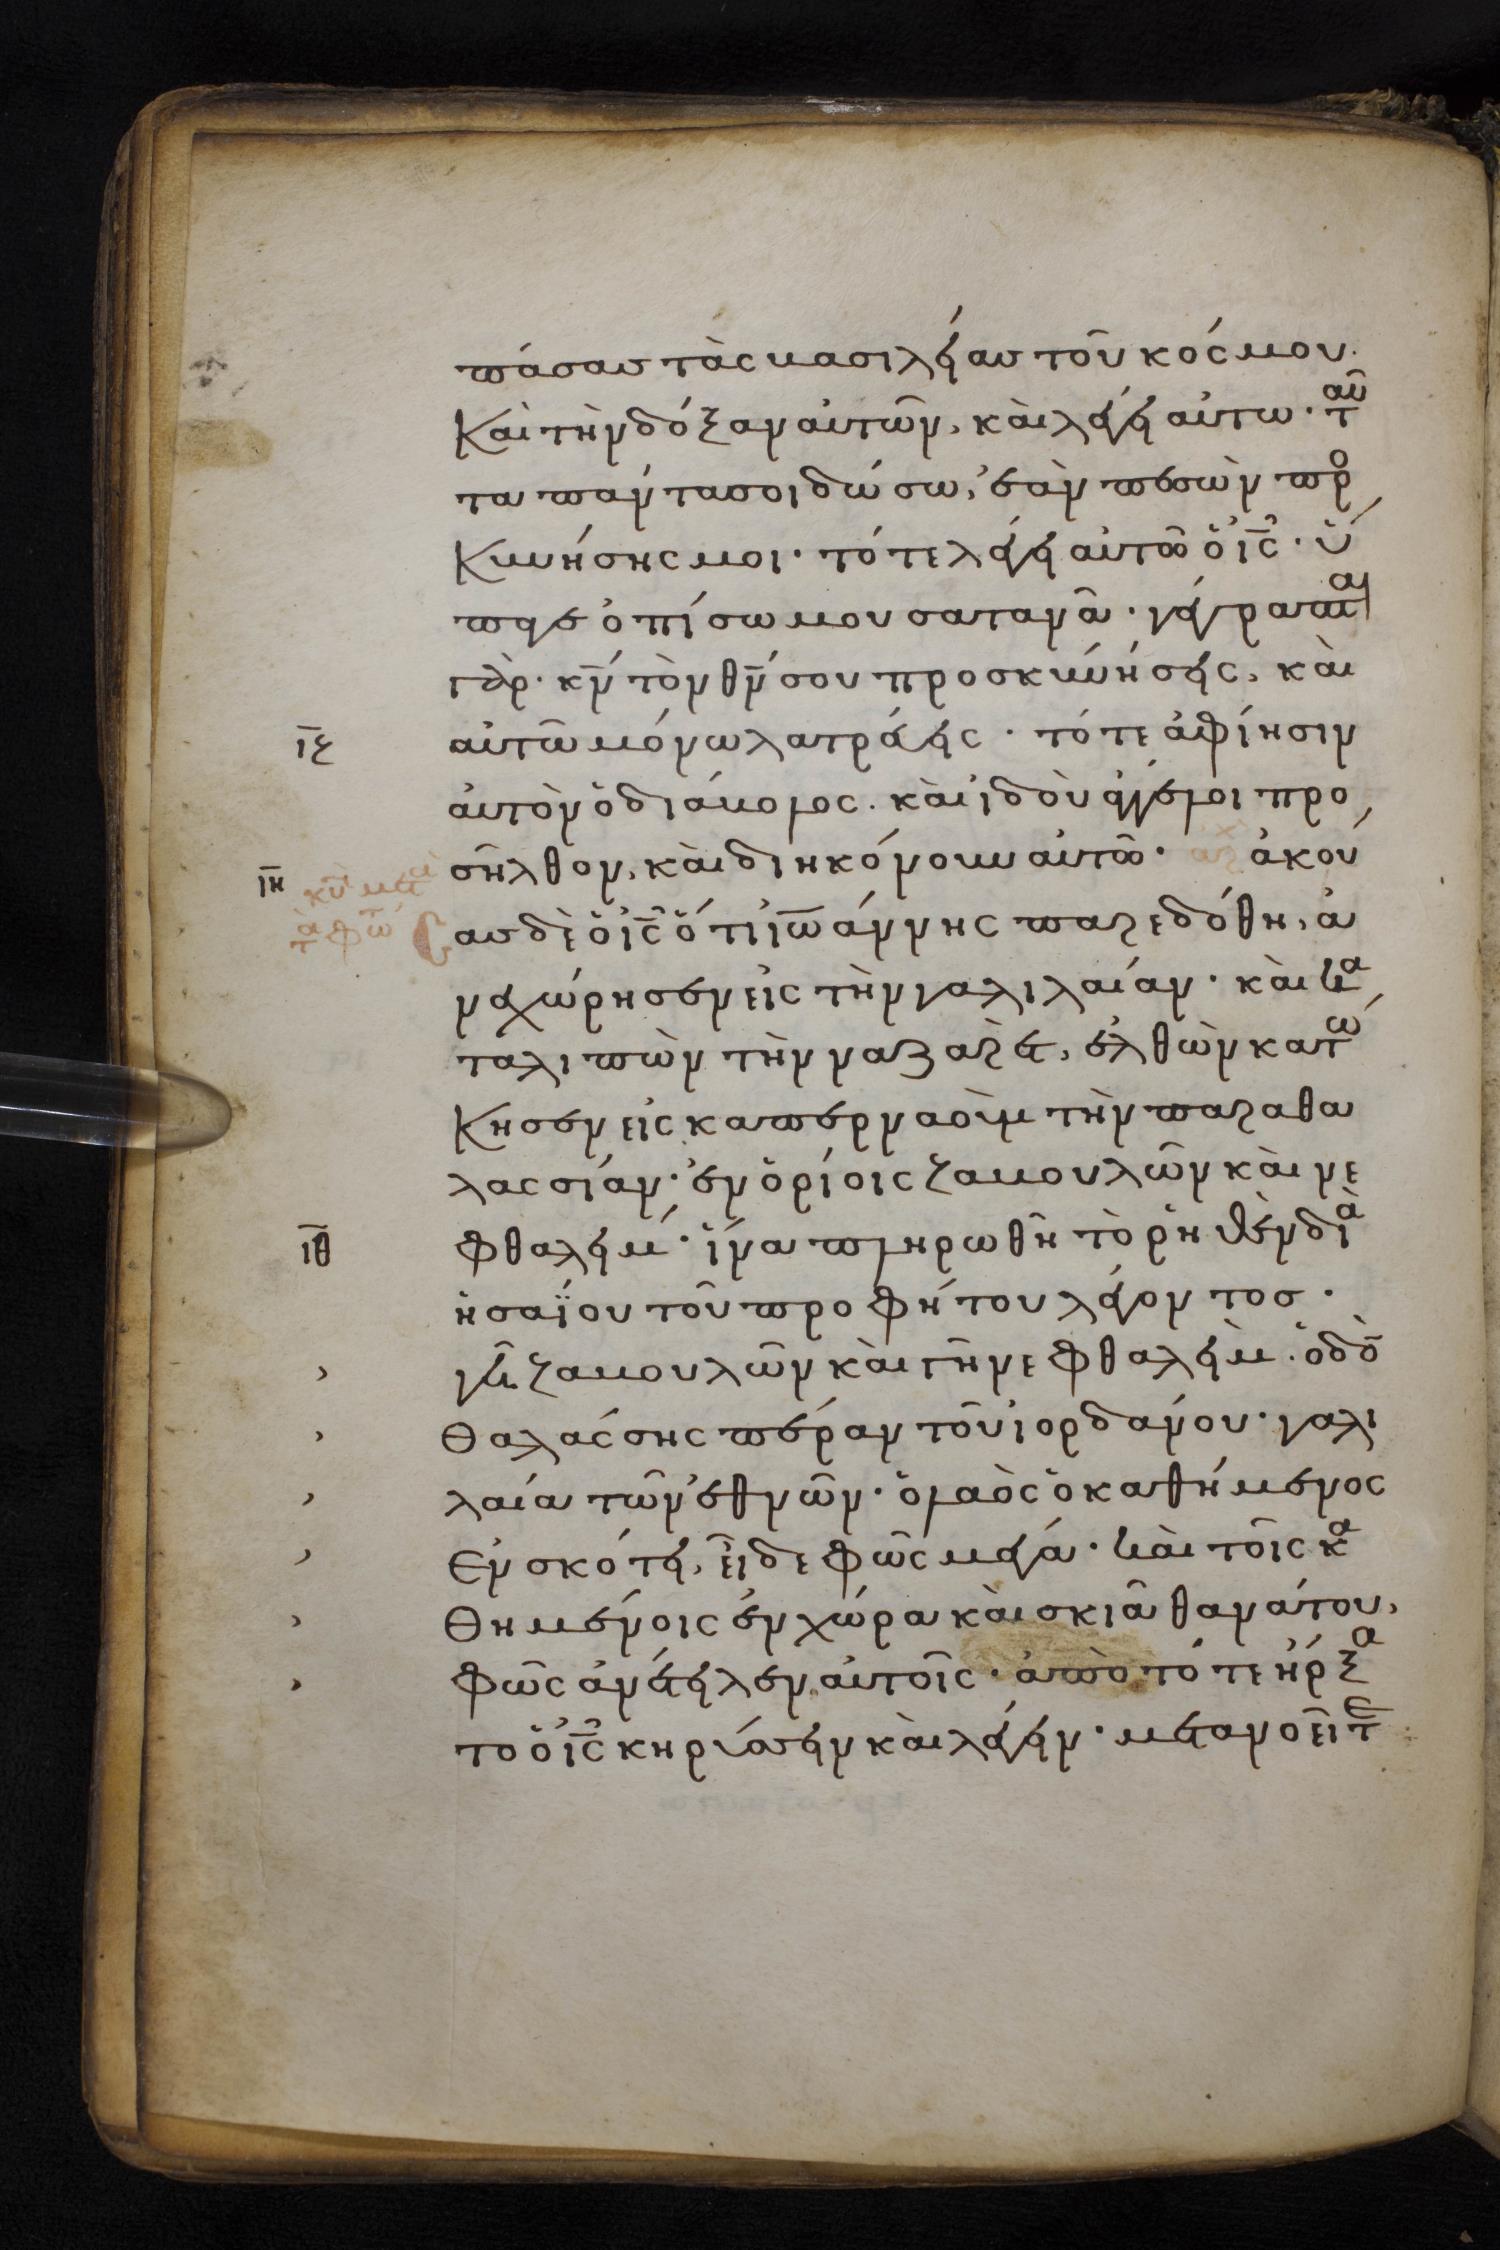 πάσας τὰς βασιλείας τοῦ κόσμου·
Καὶ τὴν δόξαν αὐτῶν, καὶ λέγει αὐτω· ταῦ
τα πάντα σοι δώσω, ἐὰν πεσὼν προ
Κυνήσης μοι· τότε λέγει αὐτῶ ὁ ἰ̅ς̅· ὕ
παγε ὀπίσω μου σατανᾶ· γέγραπται
γὰρ· κ̅ν̅ τὸν θ̅ν̅ σου προσκυνήσεις, καὶ
ιζ αὐτῶ μόνω λατρεύεις· τότε ἀφίησιν
αὐτὸν ὁ διάβολος. καὶ ἰδοὺ ἄγγελοι προ
σῆλθον, καὶ διηκόνουν αὐτῶ· ἀρχ ἀκού
ιη κυ μετὰ τὰ φῶ
ας δὲ ὁ ἰ̅ς̅ ὅτι ἰω̅άννης παρεδόθη, ἀ
νεχώρησεν εἰς τὴν γαλιλαίαν· καὶ κα
ταλιπὼν τὴν ναζαρὲτ, ἐλθὼν κατώ
Κησεν εἰς καπερναοὺμ τὴν παραθα
λασσίαν· ἐν ὁρίοις ζαβουλῶν καὶ νε
ιθ φθαλείμ· ἵνα πληρωθῆ τὸ ῥηθὲν διὰ
ἡσαΐου τοῦ προφήτου λέγοντος·
γῆ ζαβουλῶν καὶ γῆ νεφθαλεὶμ· ὁδὸ̅
Θαλάσσης πέραν τοῦ ἰορδάνου· γαλι
λαία τῶν ἐθνῶν· ὁ λαὸς ὁ καθήμενος
Ἐν σκότει, εἶδε φῶς μέγα· καὶ τοῖς κα
Θημένοις ἐν χώρα καὶ σκιᾶ θανάτου,
φῶς ἀνέτειλεν αὐτοῖς· ἀπὸ τότε ἤρξα
το ὁ ἰ̅ς̅ κηρύσσειν καὶ λέγειν· μετανοεῖτε